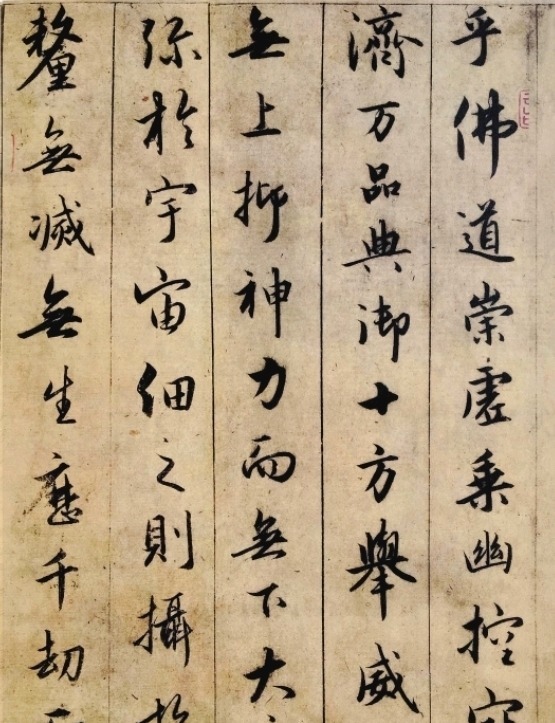 乎佛道崇虛乘幽控寂
濟万品典御十方舉威
無上抑神力而無下大
弥於宇宙細之則攝於
釐無滅無生歷千劫而